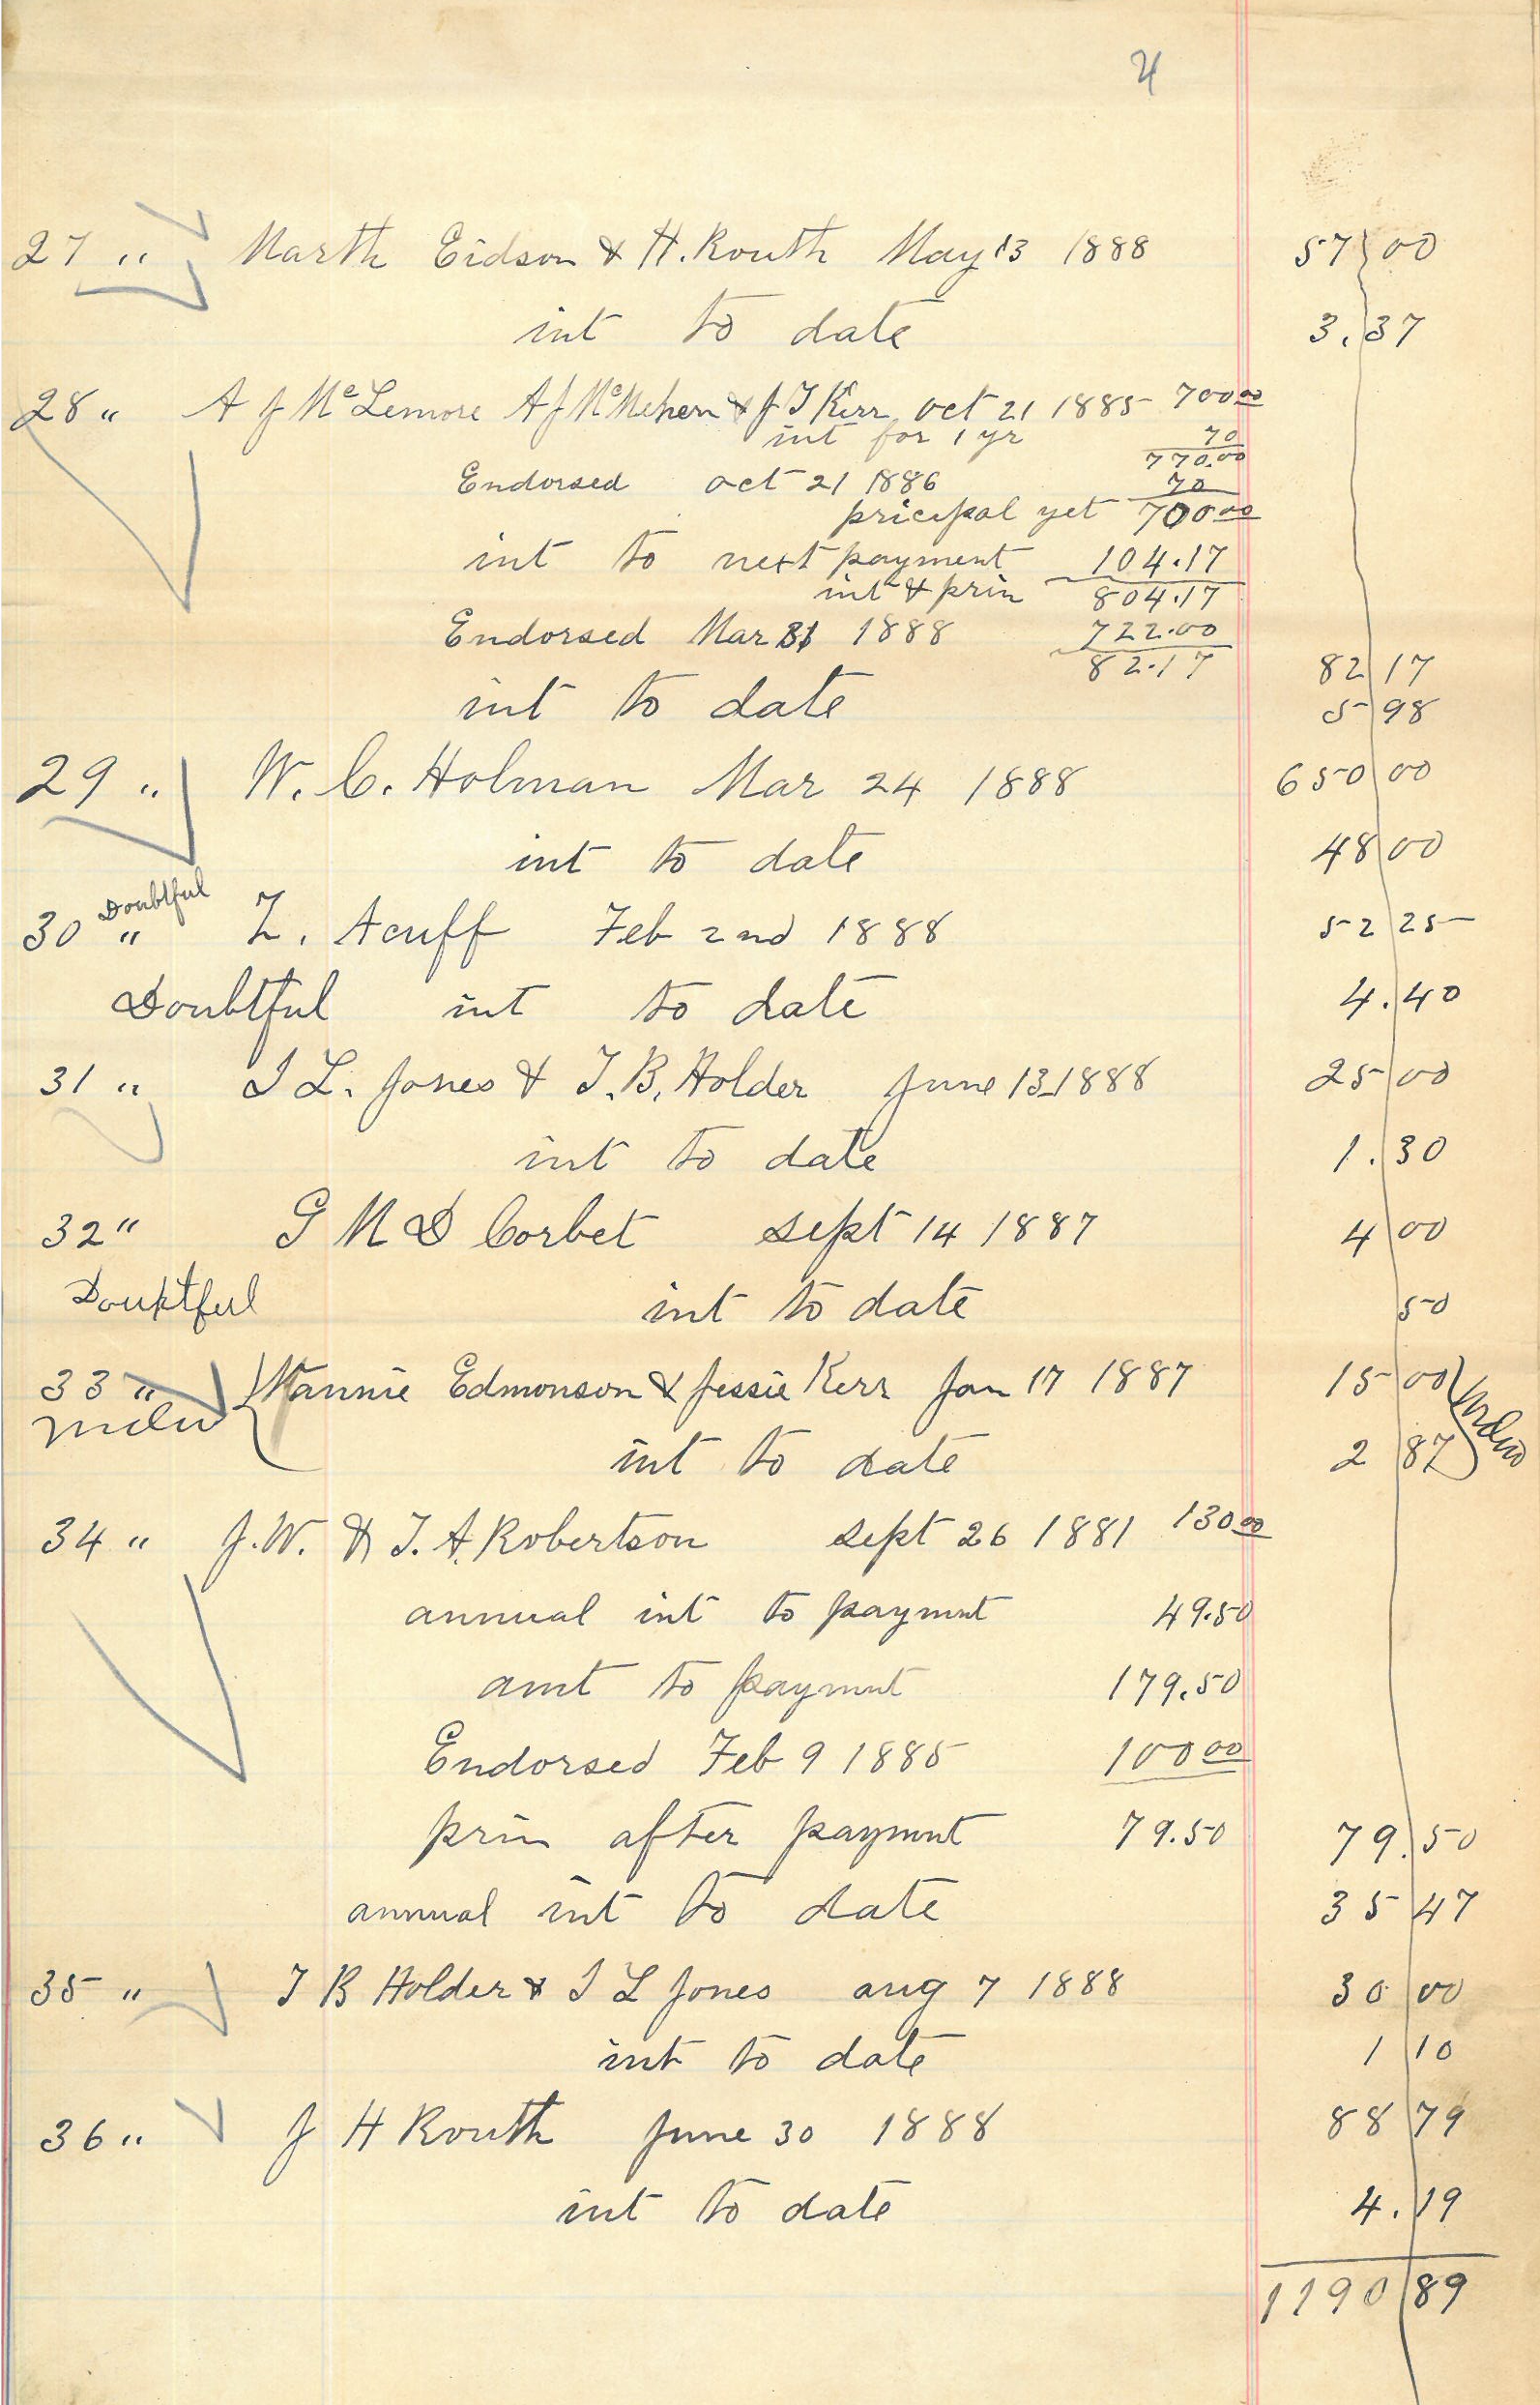 4
27 " Marth Eidson & H. Routh May 13 1888 57 00
int to date 3.37
28 " A J McLemore A J McMehen & J T Kerr oct 21 1885 700 00
int for 1 yr 70
770.00
Endorsed oct 21 1886 70
pricipal yet 700 00
int to next payment 104.17
int & prin 804.17
Endorsed Mar 31 1888 722.00
82.17 82 17
int to date 5 98
29 " W. C. Holman Mar 24 1888 650 00
int to date 48 00
Doubtful
30 " Z. Acuff Feb 2nd 1888 52 25
Doubtful int to date 4.40
31 " I L. Jones & T. B. Holder June 13 1888 25 00
int to date 1.30
32 " G M D Corbet Sept 14 1887 4 00
Douptful int to date 50
33 " Nannie Edmonson & Jessie Kerr Jan 17 1887 15 00
int to date 2 87
34 " J. W. & T. A. Robertson Sept 26 1881 130 00
annual int to paymnt 49.50
amt to paymnt 179.50
Endorsed Feb 9 1885 100 00
prin after paymnt 79.50 79.50
annual int to date 35 47
35 " T B Holder & I L Jones aug 7 1888 30 00
int to date 1 10
36 " J H Routh June 30 1888 88 79
int to date 4.19
1190 89